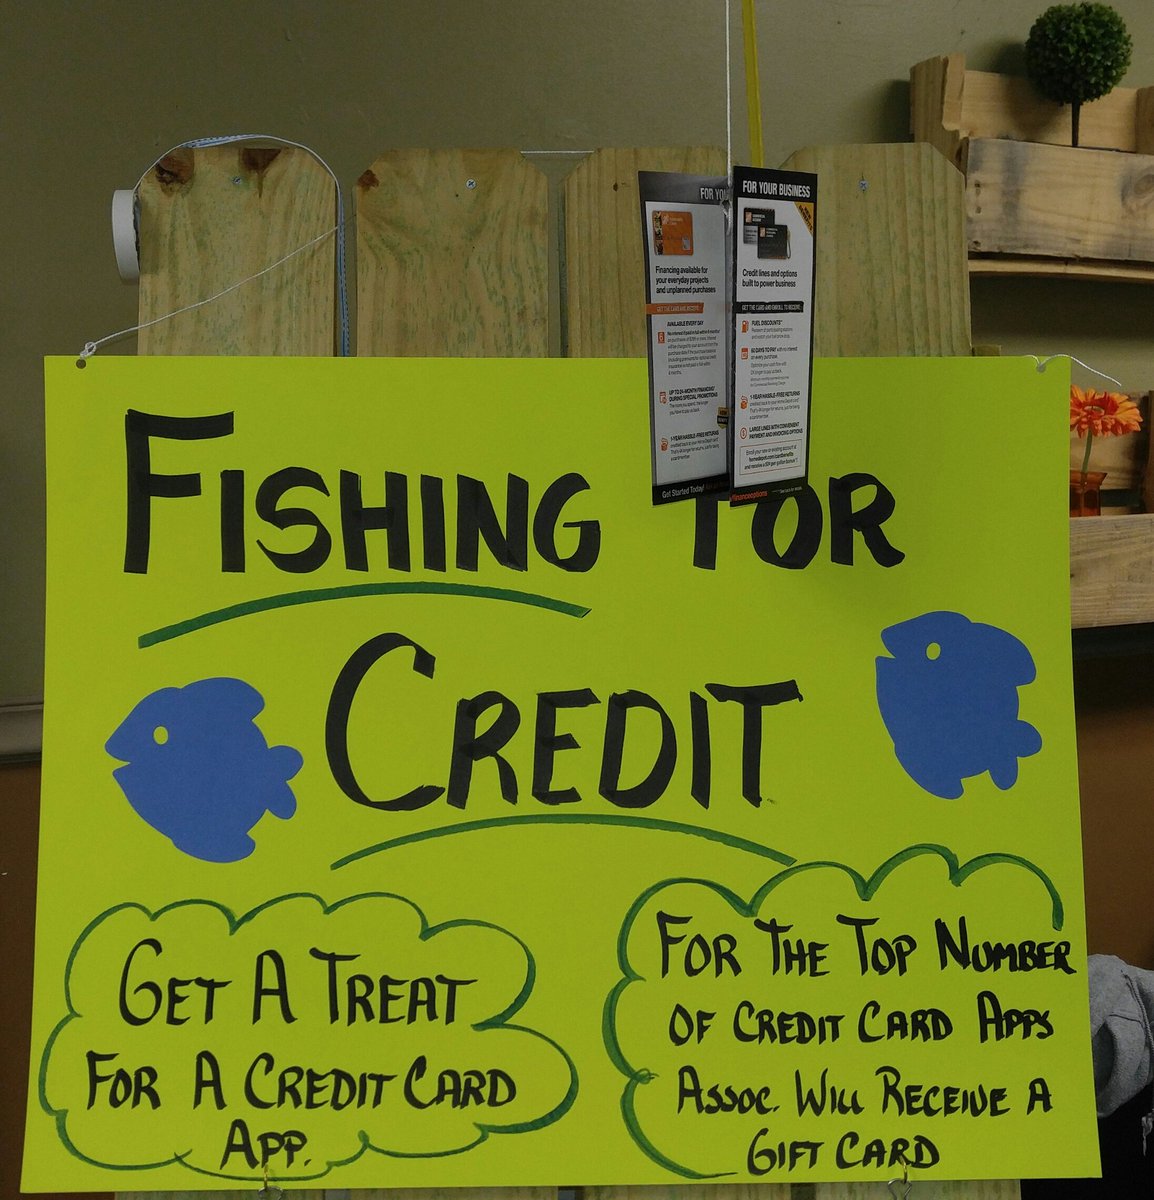 FOR YOU
FOR YOUR BUSINESS
Financing available for
your everyday projects
and unplanned purchases
GET THE CARD AND RECEIVE:
AVAILABLE EVERY DAY
UP TO 24-MONTH FINANCING
DURING SPECIAL PROMOTIONS
1-YEAR HASSLE-FREE RETURNS
Get Started Today!
Credit lines and options
built to power business
GET THE CARD AND ENROLL TO RECEIVE:
FUEL DISCOUNTS
60 DAYS TO PAY with no interest
on every purchase.
1-YEAR HASSLE-FREE RETURNS
LARGE LINES WITH CONVENIENT
PAYMENT AND INVOICING OPTIONS
/financeoptions
FISHING FOR
CREDIT
GET A TREAT
FOR A CREDIT CARD
APP.
FOR THE TOP NUMBER
OF CREDIT CARD APPS
ASSOC. WILL RECEIVE A
GIFT CARD